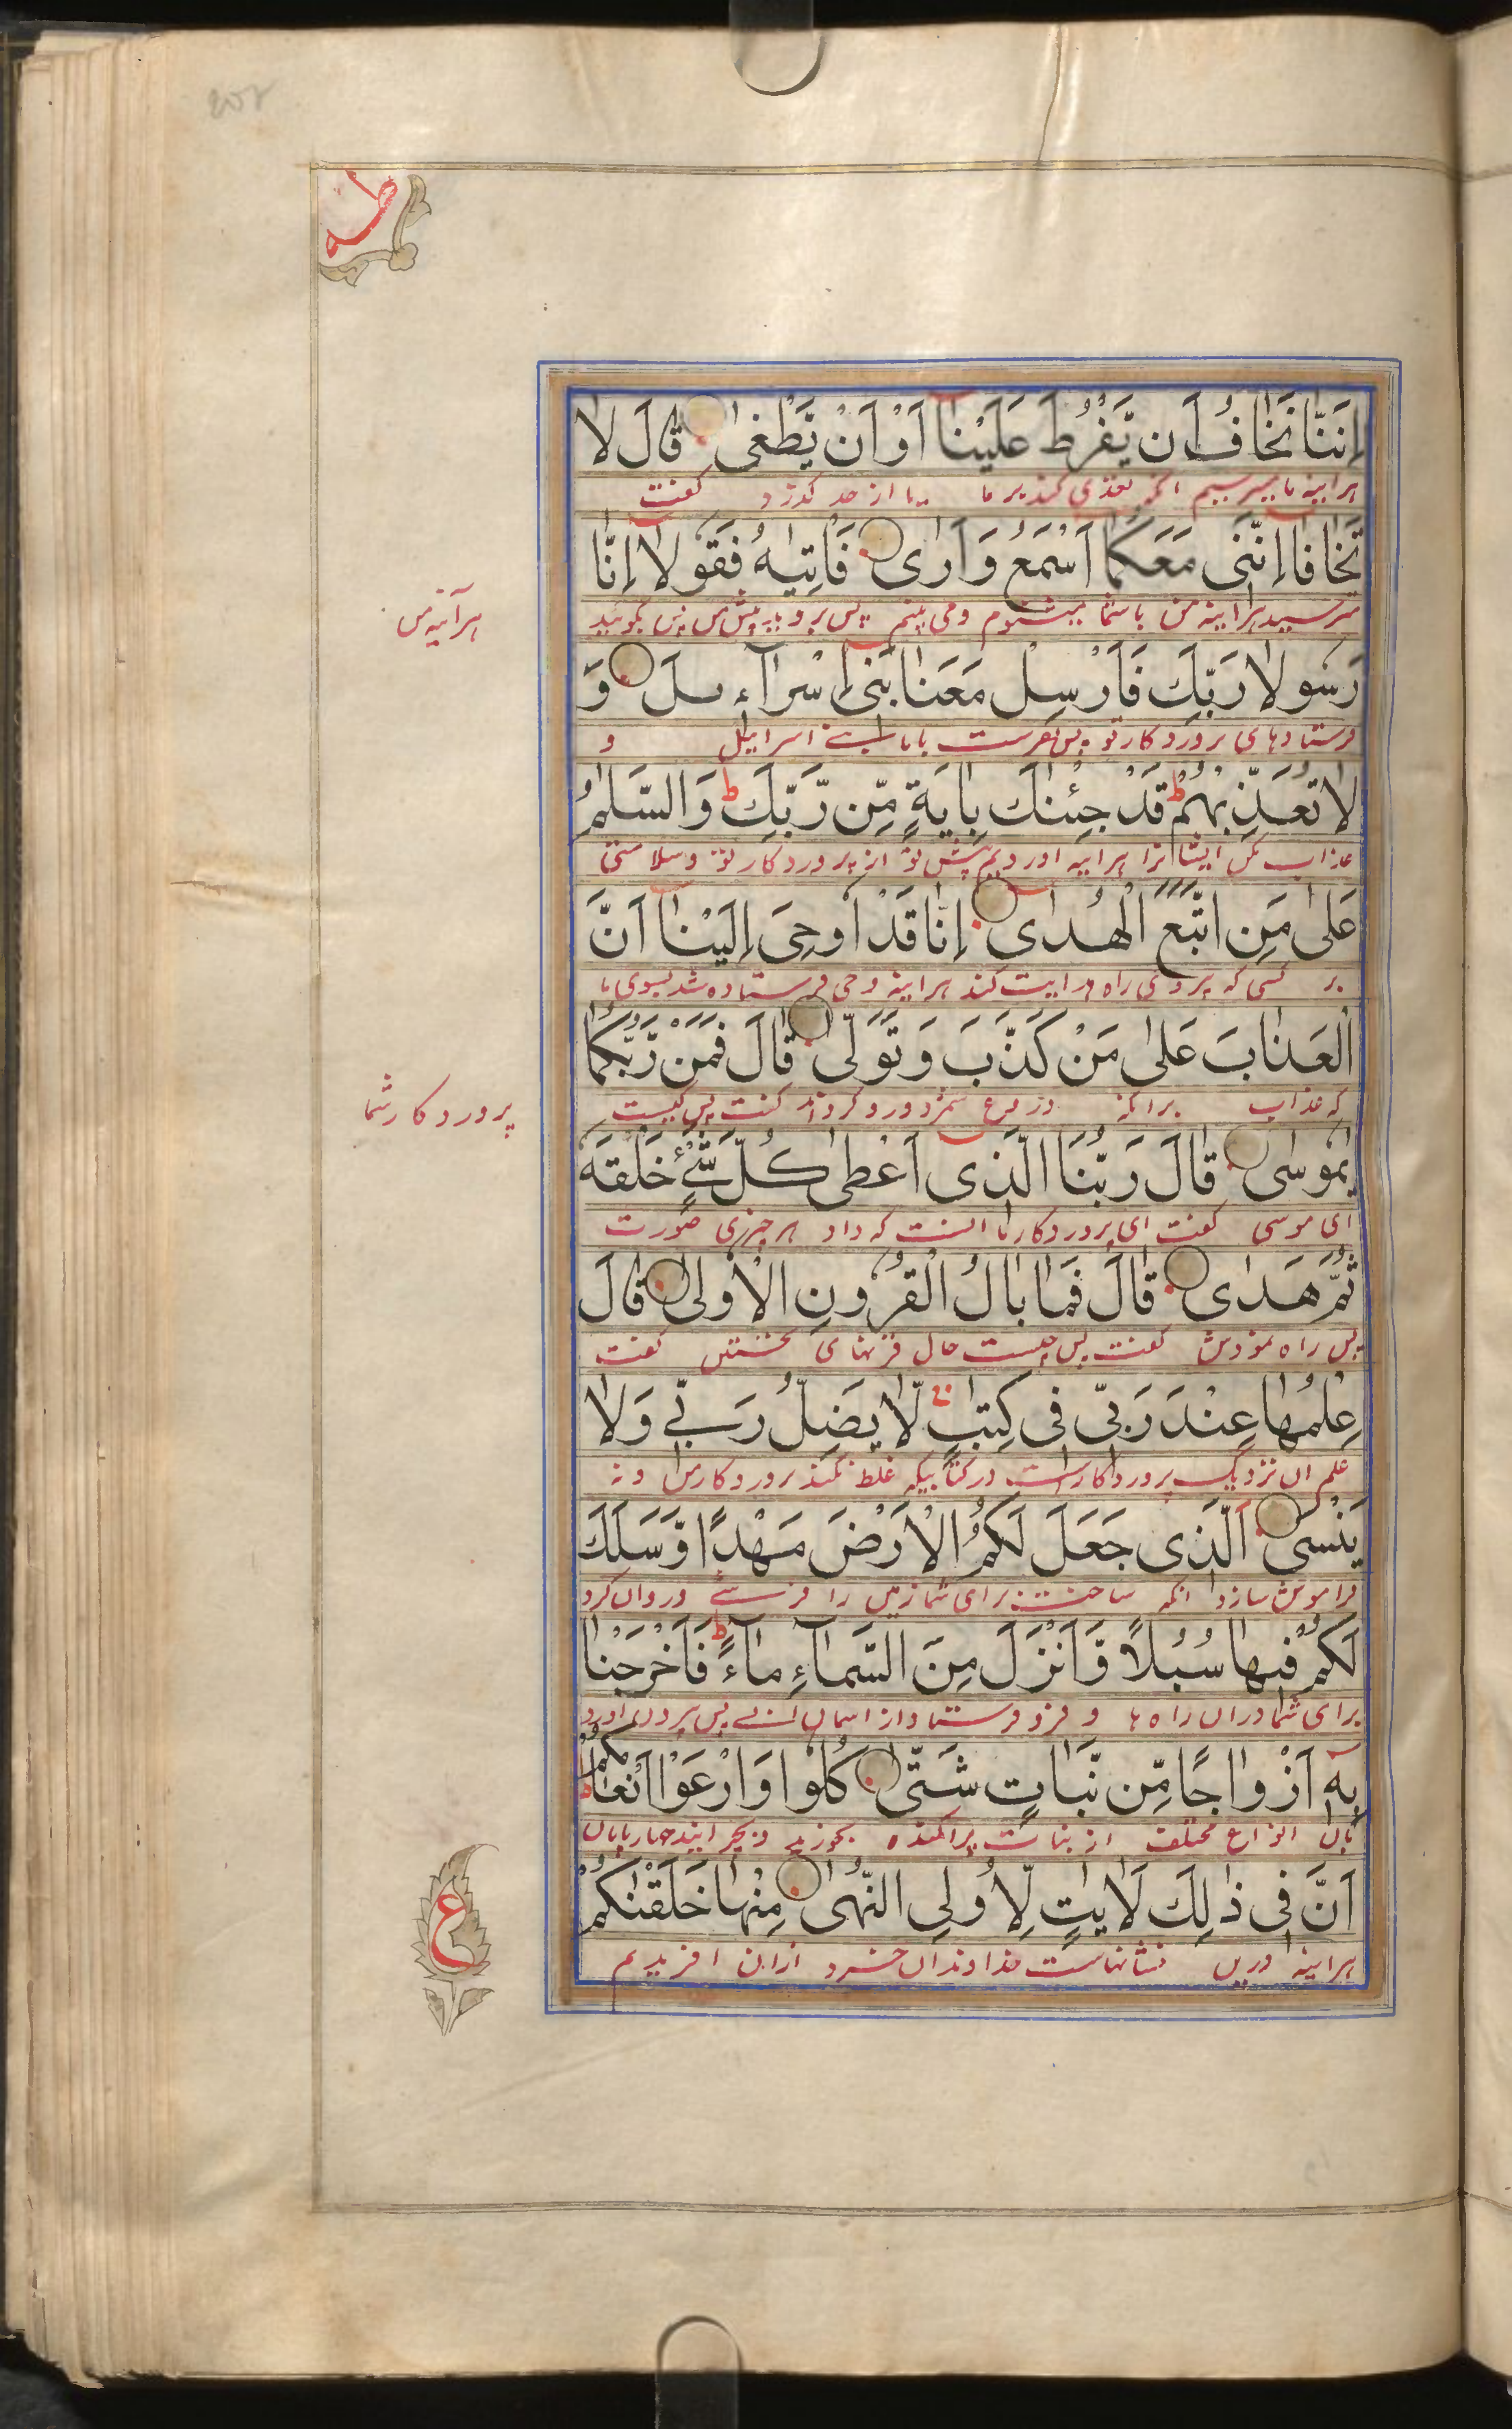 طه
اِنَّنَا نَخَافُ اَن يَّفْرُطَ عَلَيْنَا اَوْ اَنْ يَّطْغٰى قَالَ لَا
هرآینه ما میترسیم انکه تعدی کند بر ما یا از حد گذرد گفت
تَخَافَا اِنَّنِى مَعَكُمَا اَسْمَعُ وَاَرٰى فَاْتِيٰهُ فَقُوْلَا اِنَّا
مترسید هرآینه من باشما میشنوم ومی بینم پس بروید پیش پس بگویید
هرآینه من
رَسُولَا رَبِّكَ فَاَرْسِلْ مَعَنَا بَنِى اِسْرَآءيلَ وَ
فرستادهای پروردکار تو پس بفرست باما بنی اسراییل و
لَا تُعَذِّبْهُمْ ط قَدْ جِئْنٰكَ بِاٰيَةٍ مِّن رَّبِّكَ ط وَالسَّلٰمُ
عذاب مکن ایشانرا هرآینه اوردیم پیش تو از پروردکار تو وسلامتی
عَلٰى مَنِ اتَّبَعَ الْهُدٰى اِنَّا قَدْ اُوحِىَ اِلَيْنَا اَنَّ
بر کسی که پیروی راه هدایت کند هرآینه وحی فرستاده شد بسوی ما
الْعَذَابَ عَلٰى مَنْ كَذَّبَ وَتَوَلّٰى قَالَ فَمَنْ رَّبُّكُمَا
که عذاب برانکه دروغ شمرد ورو کرداند گفت پس کیست
پروردکار شما
يٰمُوسٰى قَالَ رَبُّنَا الَّذِى اَعْطٰى كُلَّ شَىْءٍ خَلْقَهٗ
ای موسی گفت ای پروردکار ما انست که داد هر چیزی صورت
ثُمَّ هَدٰى قَالَ فَمَا بَالُ الْقُرُونِ الْاُولٰى قَالَ
پس راه نمودش گفت پس چیست حال قرنهای نخستین گفت
عِلْمُهَا عِنْدَ رَبِّى فِى كِتٰبٍ لَّا يَضِلُّ رَبِّى وَلَا
علم ان نزدیک پروردکار است در کتابیکه غلط نکند پروردکار من ونه
يَنْسٰى الَّذِى جَعَلَ لَكُمُ الْاَرْضَ مَهْدًا وَّسَلَكَ
فراموش سازد انکه ساخت برای شما زمین را فرشے وروان کرد
لَكُمْ فِيهَا سُبُلًا وَّاَنْزَلَ مِنَ السَّمَآءِ مَآءً ط فَاَخْرَجْنَا
برای شما دران راه ها و فرو فرستاد از اسمان ابے پس بیرون اورد
بِهٖ اَزْوَاجًا مِّن نَّبَاتٍ شَتّٰى كُلُوا وَارْعَوْا اَنْعَامَكُمْ ط
بان انواع مختلف از نبات پراکنده بخورید و بچرانید چهارپایان
اَنَّ فِى ذٰلِكَ لَاٰيٰتٍ لِّاُولِى النُّهٰى مِنْهَا خَلَقْنٰكُمْ
هرآینه درین نشانهاست خداوندان خرد ازان افریدیم
ع